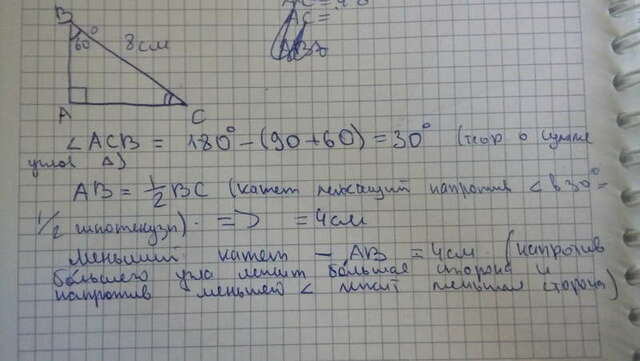 AC =
B
60°
8 см
A
C
∠ACB = 180° - (90 + 60) = 30° (теор о сумме
углов Δ)
AB = 1/2 BC (катет лежащий напротив < в 30° =
1/2 гипотенузы). => = 4 см
меньший катет - AB = 4 см (напротив
большего угла лежит большая сторона и
напротив меньшего < лежит меньшая сторона)